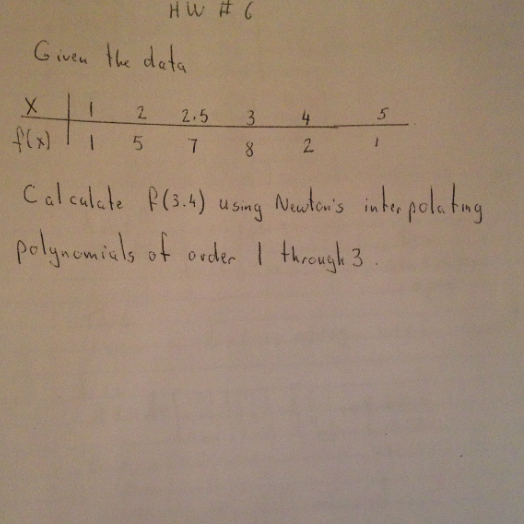 HW # 6
Given the data
x | 1 2 2.5 3 4 5
f(x) | 1 5 7 8 2 1
Calculate f(3.4) using Newton's interpolating
polynomials of order 1 through 3.